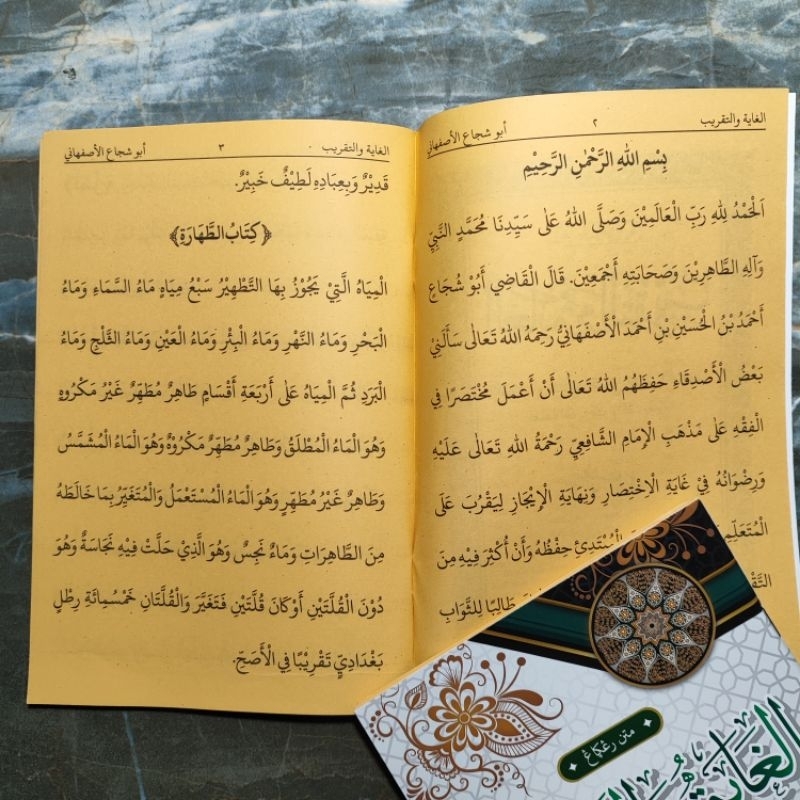 الغاية والتقريب ٢ أبو شجاع الأصفهاني
بِسْمِ اللهِ الرَّحْمٰنِ الرَّحِيْمِ
اَلْحَمْدُ لِلهِ رَبِّ الْعَالَمِيْنَ وَصَلَّى اللهُ عَلَى سَيِّدِنَا مُحَمَّدٍ النَّبِيِّ
وَآلِهِ الطَّاهِرِيْنَ وَصَحَابَتِهِ أَجْمَعِيْنَ. قَالَ الْقَاضِي أَبُوْ شُجَاعٍ
أَحْمَدُ بْنُ الْحُسَيْنِ بْنِ أَحْمَدَ الْأَصْفَهَانِيُّ رَحِمَهُ اللهُ تَعَالَى سَأَلَنِيْ
بَعْضُ الْأَصْدِقَاءِ حَفِظَهُمُ اللهُ تَعَالَى أَنْ أَعْمَلَ مُخْتَصَرًا فِي
الْفِقْهِ عَلَى مَذْهَبِ الْإِمَامِ الشَّافِعِيِّ رَحْمَةُ اللهِ تَعَالَى عَلَيْهِ
وَرِضْوَانُهُ فِيْ غَايَةِ الْاِخْتِصَارِ وَنِهَايَةِ الْإِيْجَازِ لِيَقْرُبَ عَلَى
الْمُبْتَدِئِ حِفْظُهُ وَأَنْ أُكْثِرَ فِيْهِ مِنَ
طَالِبًا لِلثَّوَابِ
الغاية والتقريب ٣ أبو شجاع الأصفهاني
قَدِيْرٌ وَبِعِبَادِهِ لَطِيْفٌ خَبِيْرٌ.
﴿كِتَابُ الطَّهَارَةِ﴾
الْمِيَاهُ الَّتِيْ يَجُوْزُ بِهَا التَّطْهِيْرُ سَبْعُ مِيَاهٍ مَاءُ السَّمَاءِ وَمَاءُ
الْبَحْرِ وَمَاءُ النَّهْرِ وَمَاءُ الْبِئْرِ وَمَاءُ الْعَيْنِ وَمَاءُ الثَّلْجِ وَمَاءُ
الْبَرَدِ ثُمَّ الْمِيَاهُ عَلَى أَرْبَعَةِ أَقْسَامٍ طَاهِرٌ مُطَهِّرٌ غَيْرُ مَكْرُوْهٍ
وَهُوَ الْمَاءُ الْمُطْلَقُ وَطَاهِرٌ مُطَهِّرٌ مَكْرُوْهٌ وَهُوَ الْمَاءُ الْمُشَمَّسُ
وَطَاهِرٌ غَيْرُ مُطَهِّرٍ وَهُوَ الْمَاءُ الْمُسْتَعْمَلُ وَالْمُتَغَيِّرُ بِمَا خَالَطَهُ
مِنَ الطَّاهِرَاتِ وَمَاءٌ نَجِسٌ وَهُوَ الَّذِيْ حَلَّتْ فِيْهِ نَجَاسَةٌ وَهُوَ
دُوْنَ الْقُلَّتَيْنِ أَوْ كَانَ قُلَّتَيْنِ فَتَغَيَّرَ وَالْقُلَّتَانِ خَمْسُمِائَةِ رِطْلٍ
بَغْدَادِيٍّ تَقْرِيْبًا فِي الْأَصَحِّ.
متن
الغاية